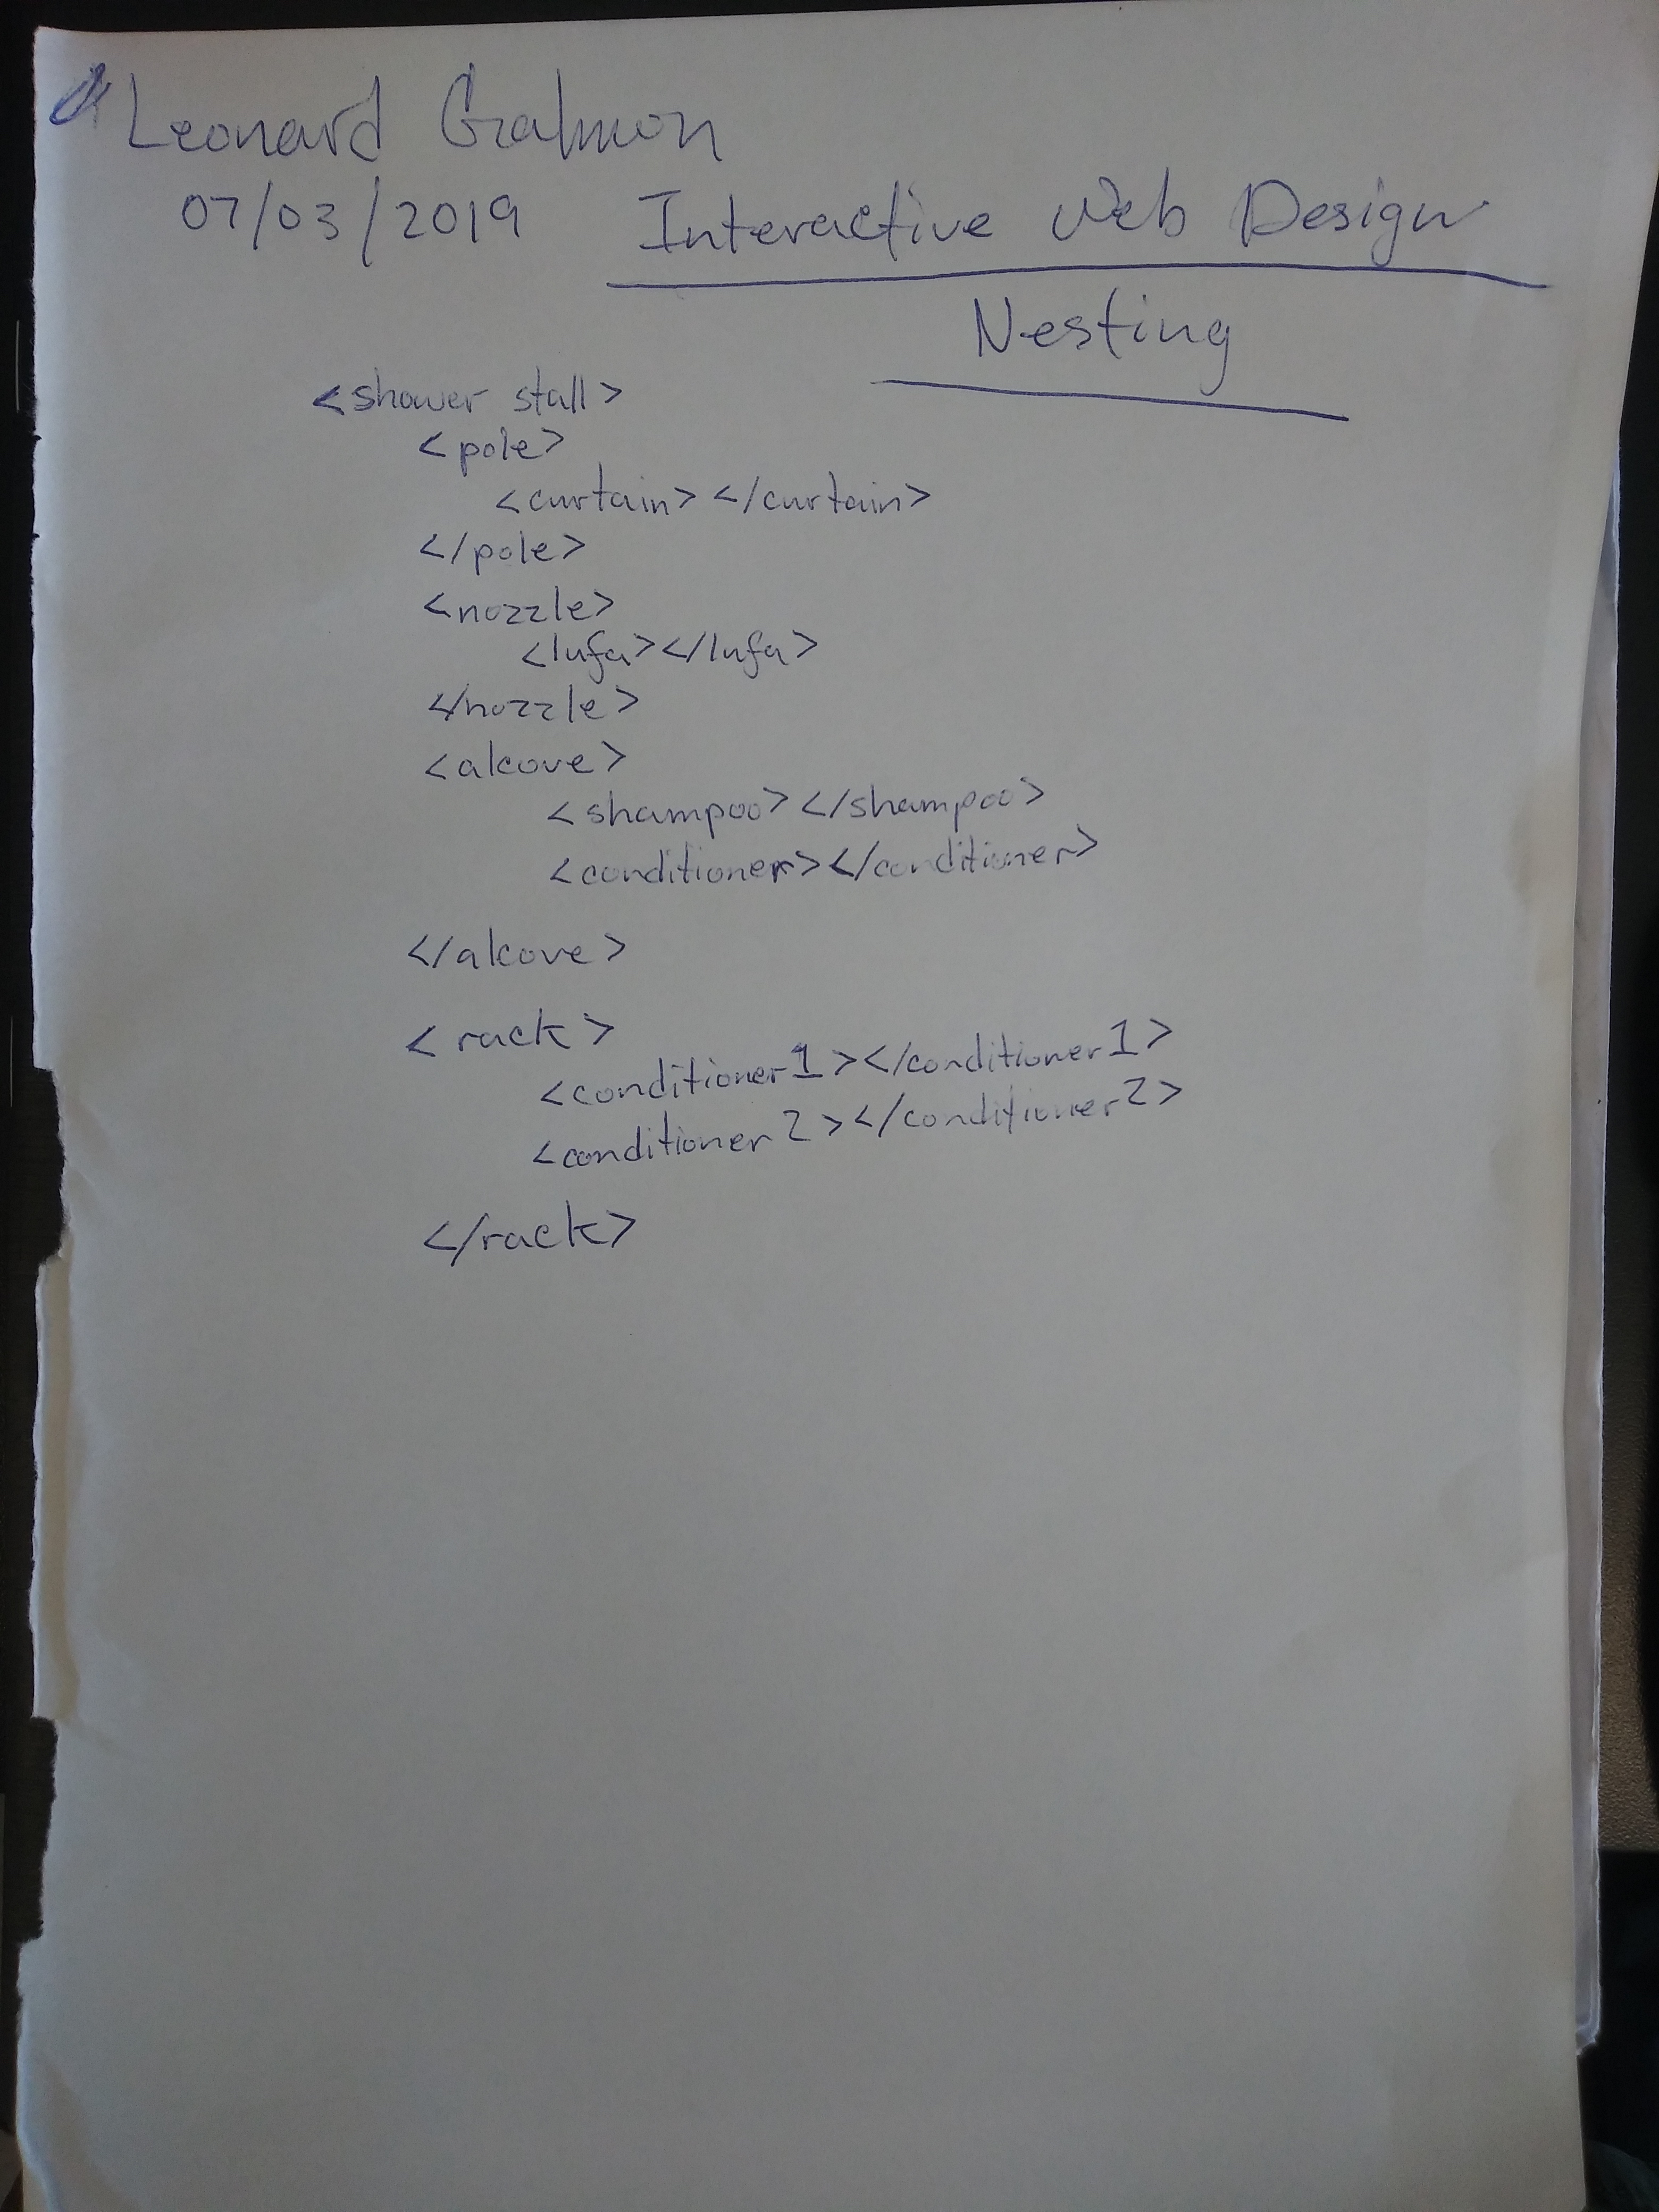 Leonard Galmon
07/03/2019 Interactive Web Design
Nesting
<shower stall>
<pole>
<curtain></curtain>
</pole>
<nozzle>
<lufa></lufa>
</nozzle>
<alcove>
<shampoo></shampoo>
<conditioner></conditioner>
</alcove>
<rack>
<conditioner1></conditioner1>
<conditioner2></conditioner2>
</rack>